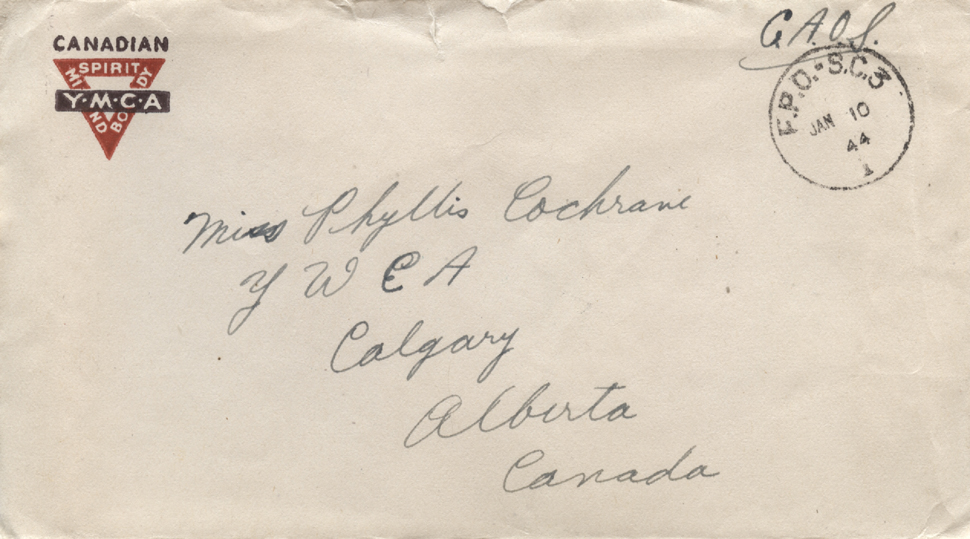 CANADIAN
SPIRIT
MIND BODY
Y·M·C·A
C.A.O.S.
F.P.O.-S.C.3
JAN 10
44
1
Miss Phyllis Cochrane
Y W C A
Calgary
Alberta
Canada